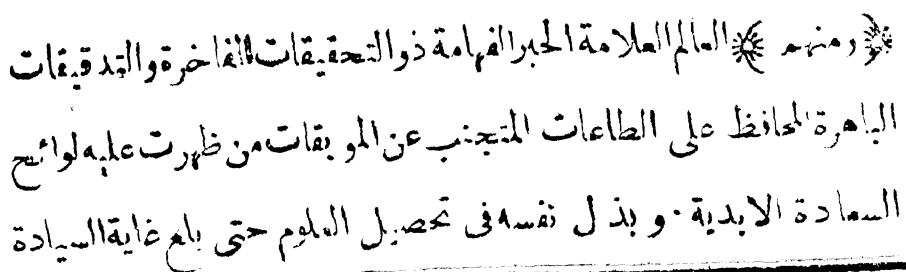 ﴿ ومنهم ﴾ العالم العلامة الحبر الفهامة ذو التحقيقات الفاخرة والتدقيقات
الباهرة المحافظ على الطاعات المتجنب عن الموبقات من ظهرت عليه لوائح
السعادة الابدية . وبذل نفسه فى تحصيل العلوم حتى بلغ غاية السيادة